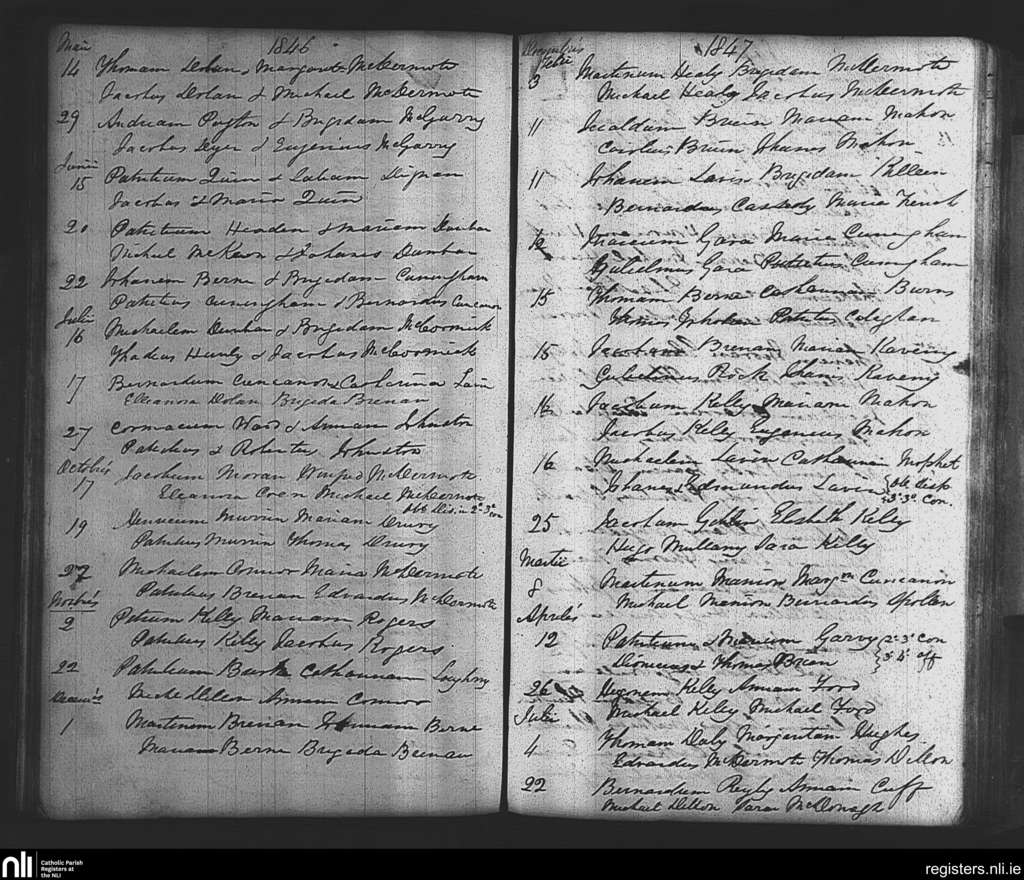 Maii 1846
14 Thomam Dolan & Margarita McDermott
Jacobus Dolan & Michael McDermott
29 Andream Payton & Brigidam McGarry
Jacobus Dyer & Eugenius McGarry
Junii
15 Patritium Quin & Dignan
Jacobus & Maria Quin
20 Patritium Headen & Mariam Dunban
Michael McKeon & Johanes Dunban
22 Johanem Berne & Brigidam Cuningham
Patritius Cuningham & Bernardus Concanon
Julii
16 Michaelem Dunban & Brigidam McCormick
Thadeus Hunly & Jacobus McCormick
17 Bernardum Cuncanon & Catharina
Eleanora Dolan Brigida Brenan
27 Cormacum Ward & Annam Johnston
Patritius & Robertus Johnston
Octobris
17 Jacobum Moran Winifred McDermott
Eleanora Coen Michael McDermott
Obt Dis. in 2o 3o con
19 Murrin Mariam Drury
Patritius Murrin Thomas Drury
27 Michaelem Connor Maria McDermott
Patritius Brenan Edvardus McDermott
Novbris
2 Petrum Kelly Mariam Rogers
Patritius Kelly Jacobus Rogers
22 Patritium Burk Catharinam Loughny
Dillon Annam Connor
1 Martinum Brenan Berne
Mariam Berne Brigida Brenan
1847
3 Martinum Healy Brigidam McDermott
Michael Healy Jacobus McDermott
11 Brien Mariam Mahon
Carolus Brien Johanes Mahon
11 Johanem Brigidam
Bernardus Cassedy Maria French
12 Gara Maria Cuningham
Gulielmus Gara Patritius Cuningham
15 Thomam Berne Catharinam Burns
Thomas Patritius
15 Brenan Mariam Kaveny
Rock Kaveny
16 Kelly Mariam Mahon
Jacobus Kelly Eugenius Mahon
16 Michaelem Lavin Catharinam
Johanes & Edmundus Lavin { Obt disp
3o 3o Con.
25 Jacobum Kelly
Hugo Mullany Sara Kelly
Martii
8 Martinum Manion Margm Cuncanon
Michael Manion Bernardus
Aprilis
12 Patritium & Mariam Garvy { 2o 3o Con
& Thomas Brien { 3o 4o aff
26 Kelly Annam Ford
Michael Kelly Michael Ford
Julii
4 Thomam Daly Margaritam Hughes
Edvardus McDermott Thomas Dillon
22 Bernardum Reyly Annam Cuff
Michael Dillon Sara McDonagh
nli
Catholic Parish
Registers at
the NLI
registers.nli.ie